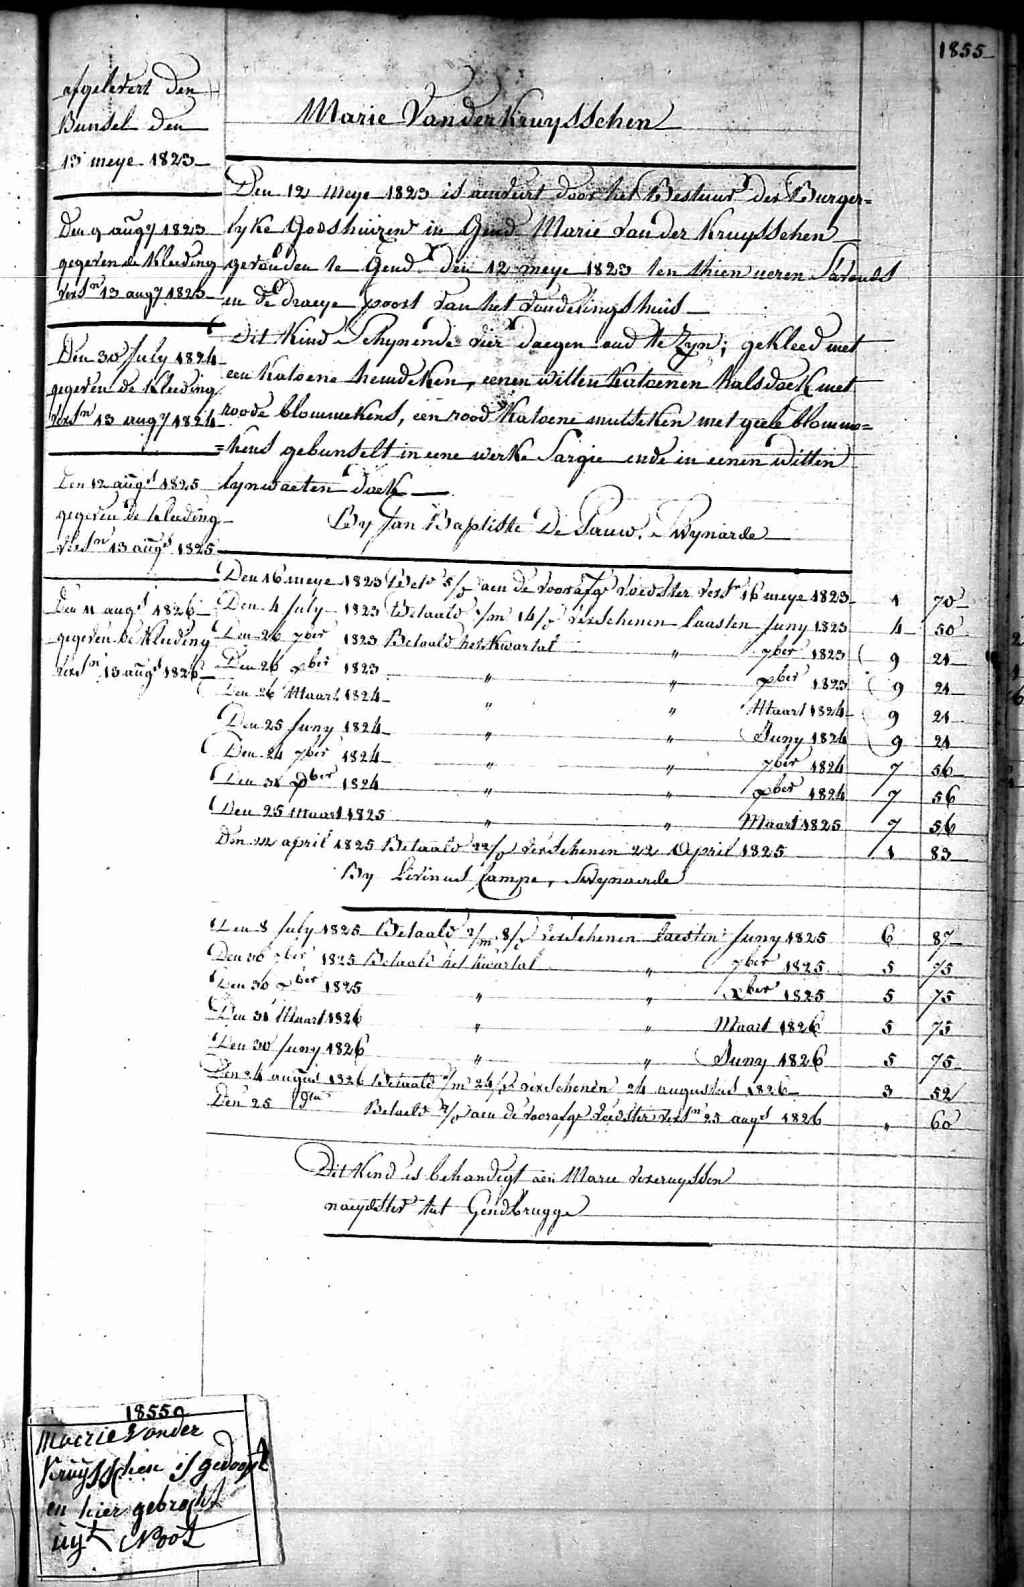 1855
afgelevert den
Bunsel den
13 meye 1823
Den 9 augt 1823
gegeven de Kleeding
versn 13 augt 1823
Den 30 July 1824
gegeven de Kleeding
versn 13 augt 1824
Den 12 augt 1825
gegeven de kleeding
versn 13 augt 1825
Den 11 augt 1826
gegeven de Kleeding
versn 13 augt 1826
Marie Vander Kruysschen
Den 12 meye 1823 is aenveirt door het Bestuur der Burger=
lyke Godshuizen in Gend Marie Vander Kruysschen
gevonden te Gend den 12 meye 1823 ten thien ueren Savonds
en de draeye poort van het vondelingshuis
Dit Kind Schynende vier daegen oud te Zyn; gekleed met
een Katoene hemdeken, eenen witten Katoenen halsdoek met
roode blommekens, een rood Katoene mutseken met geele blomme=
=kens gebunselt in eene werke Sargie ende in eenen witten
lynwaeten doek
By Jan Baptiste De Pauw, Swynarde
Den 16 meye 1823 Bet 5/ aen de voorafge voedster versn 16 meye 1823 1 70
Den 4 July 1823 Betaald 1/m 14/ verschenen laasten Juny 1823 4 50
Den 26 7ber 1823 Betaald het Kwartal " 7ber 1823 9 21
Den 26 xber 1823 " " xber 1823 9 21
Den 26 Maart 1824 " " Maart 1824 9 21
Den 25 Juny 1824 " " Juny 1824 9 21
Den 24 7ber 1824 " " 7ber 1824 7 56
Den 31 xber 1824 " " xber 1824 7 56
Den 25 Maart 1825 " " Maart 1825 7 56
Den 22 april 1825 Betaald 22/ verschenen 22 April 1825 1 83
By Livinus Campe, Swynaerde
Den 8 July 1825 Betaald 2/m 8/ verschenen laesten Juny 1825 6 87
Den 30 7ber 1825 Betaald het Kwartal " 7ber 1825 5 75
Den 30 xber 1825 " " xber 1825 5 75
Den 31 Maart 1826 " " Maart 1826 5 75
Den 30 Juny 1826 " " Juny 1826 5 75
Den 24 august 1826 Betaald 1/m 24/ verschenen 24 augustus 1826 3 52
Den 25 dito Betaeld aen de voorafge voedster versn 25 augt 1826 " 60
Dit Kind is behandigt aen Marie vercruyssen
naeydster tot Gendbrugge
1855
Maerie Vander
Kruysschen is gedoopt
en hier gebrocht
uyt Noot